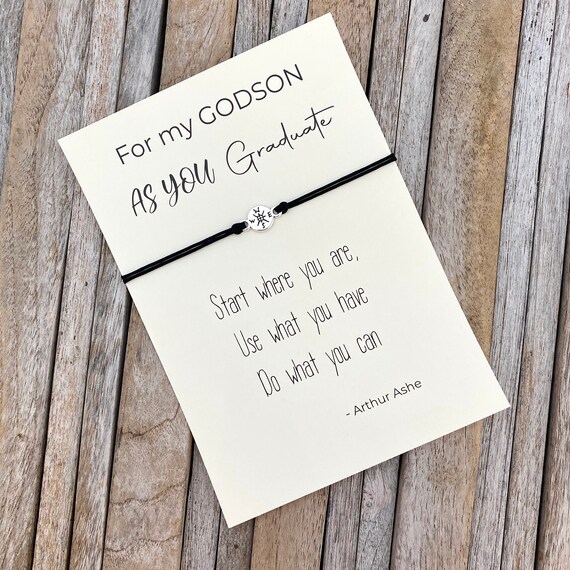 For my GODSON
AS YOU Graduate
W E S
Start where you are,
Use what you have
Do what you can
- Arthur Ashe